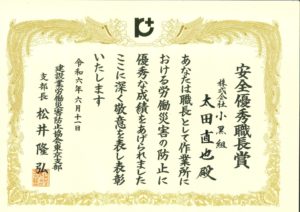 安全優秀職長賞
株式会社小黒組
太田直也殿
あなたは職長として作業所に
おける労働災害の防止に
優秀な成績をあげられました
ここに深く敬意を表し表彰
いたします
令和六年六月十一日
建設業労働災害防止協会東京支部
支部長 松井隆弘